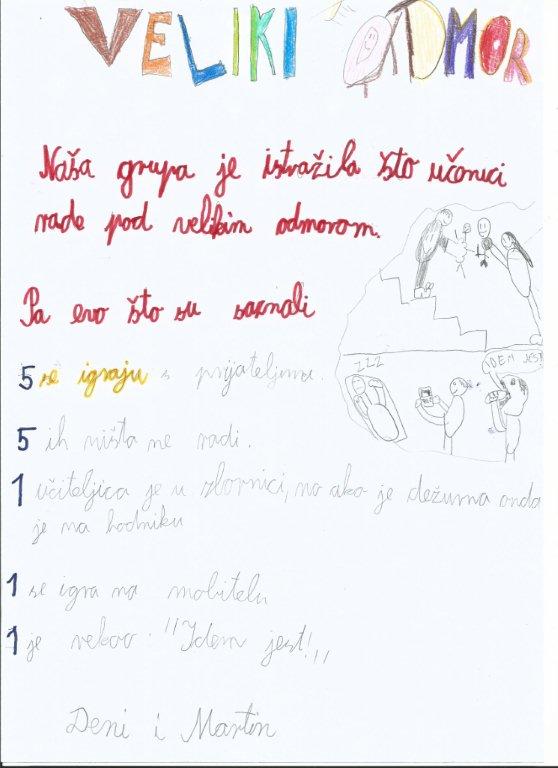 VELIKI ODMOR
Naša grupa je istražila što učenici
rade pod velikim odmorom.
Pa evo što su saznali
ZZZ
IDEM JEST
5 se igraju s prijateljima.
5 ih ništa ne radi.
1 učiteljica je u zbornici, no ako je dežurna onda
je na hodniku
1 se igra na mobitelu
1 je rekao: "Idem jest!"
Deni i Martin